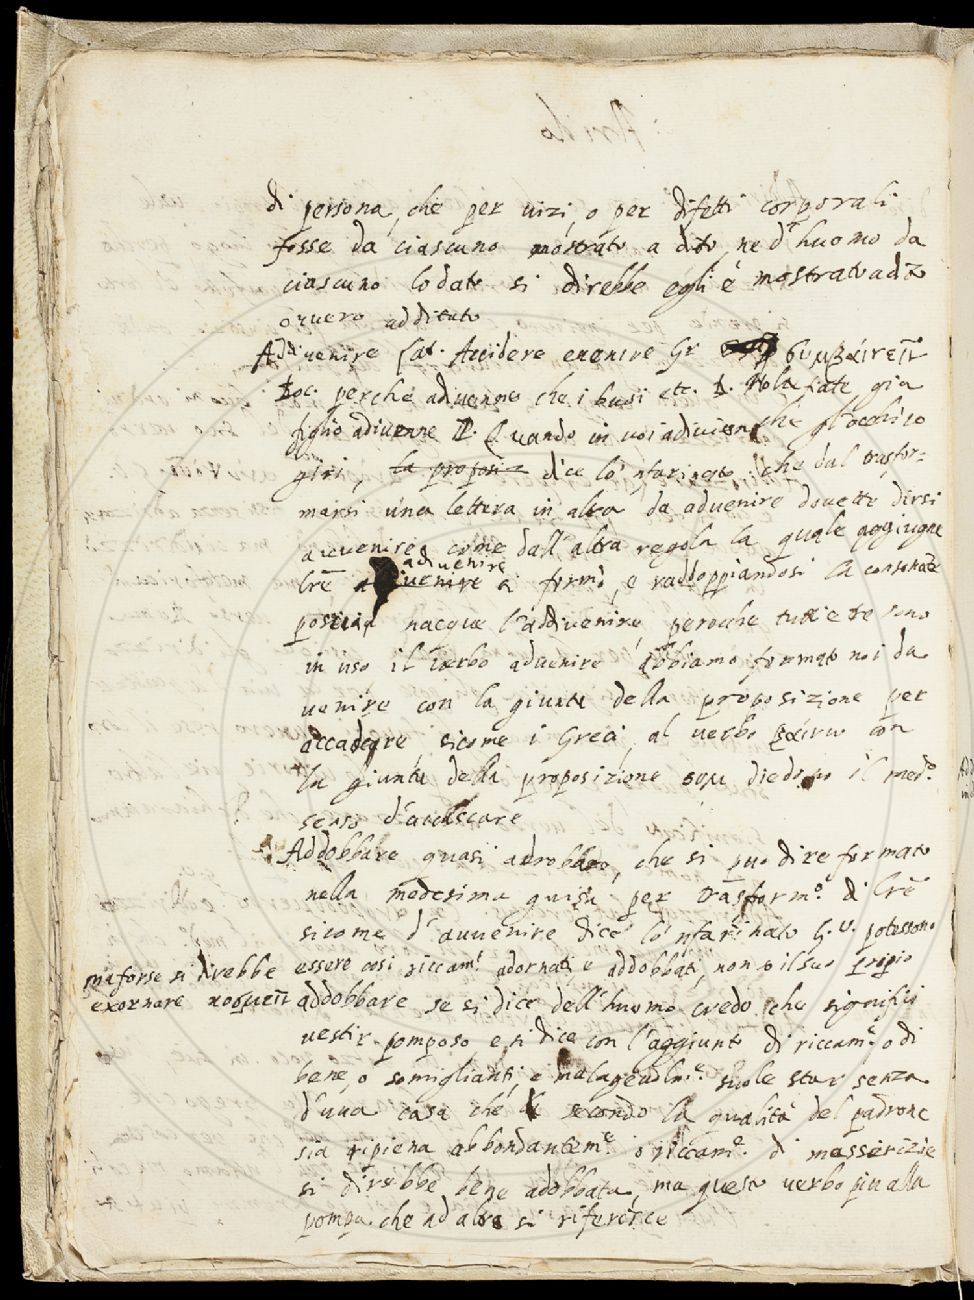 di persona, che per vizi, o per difetti corporali
fosse da ciascuno mostrato a dito, ne d'huomo da
ciascuno lodato si direbbe egli è mostrato a dito
overo additato
Addivenire Lat. Accidere evenire Gr συμβαίνειν
Boc. perche advenne che i buoi ett. D.
figlio adivenne P. Quando in voi adivien che gl'occhi io
giri, la proposiz dice lo 'nfarinato, che dal trasfor-
marsi una lettera in altra da advenire dovette dirsi
avvenire, come dall'altra regola la quale aggiugne
adivenire
l're adivenire si formò, e raddoppiandosi la consonante
poscia nacque l'addivenire, peroche tutt'e tre sono
in uso il verbo advenire abbiamo formato noi da
venire con la giunta della proposizione per
accadere sicome i Greci al verbo βαίνω con
la giunta della proposizione συμ diedono il med.o
senso d'accascare
Addobbare quasi adrobbare, che si può dire formato
nella medesima guisa per trasform.e di l're
sicome d'avvenire dice lo 'nfarinato G. V. potessono
essere così riccam.e adornati e addobbati, non so il suo proprio
ma forse si direbbe
exornare κοσμεῖν
addobbare se si dice dell'huomo credo che significhi
vestir pomposo e si dice con l'aggiunto di riccam.e o di
bene, o somiglianti, e malagevolm.e suole star senza
d'una casa che secondo la qualità del padrone
sia ripiena abbondantem.e o riccam.e di masserizie
si direbbe bene adobbata, ma questo verbo piu alla
pompa che ad altro si riferisce